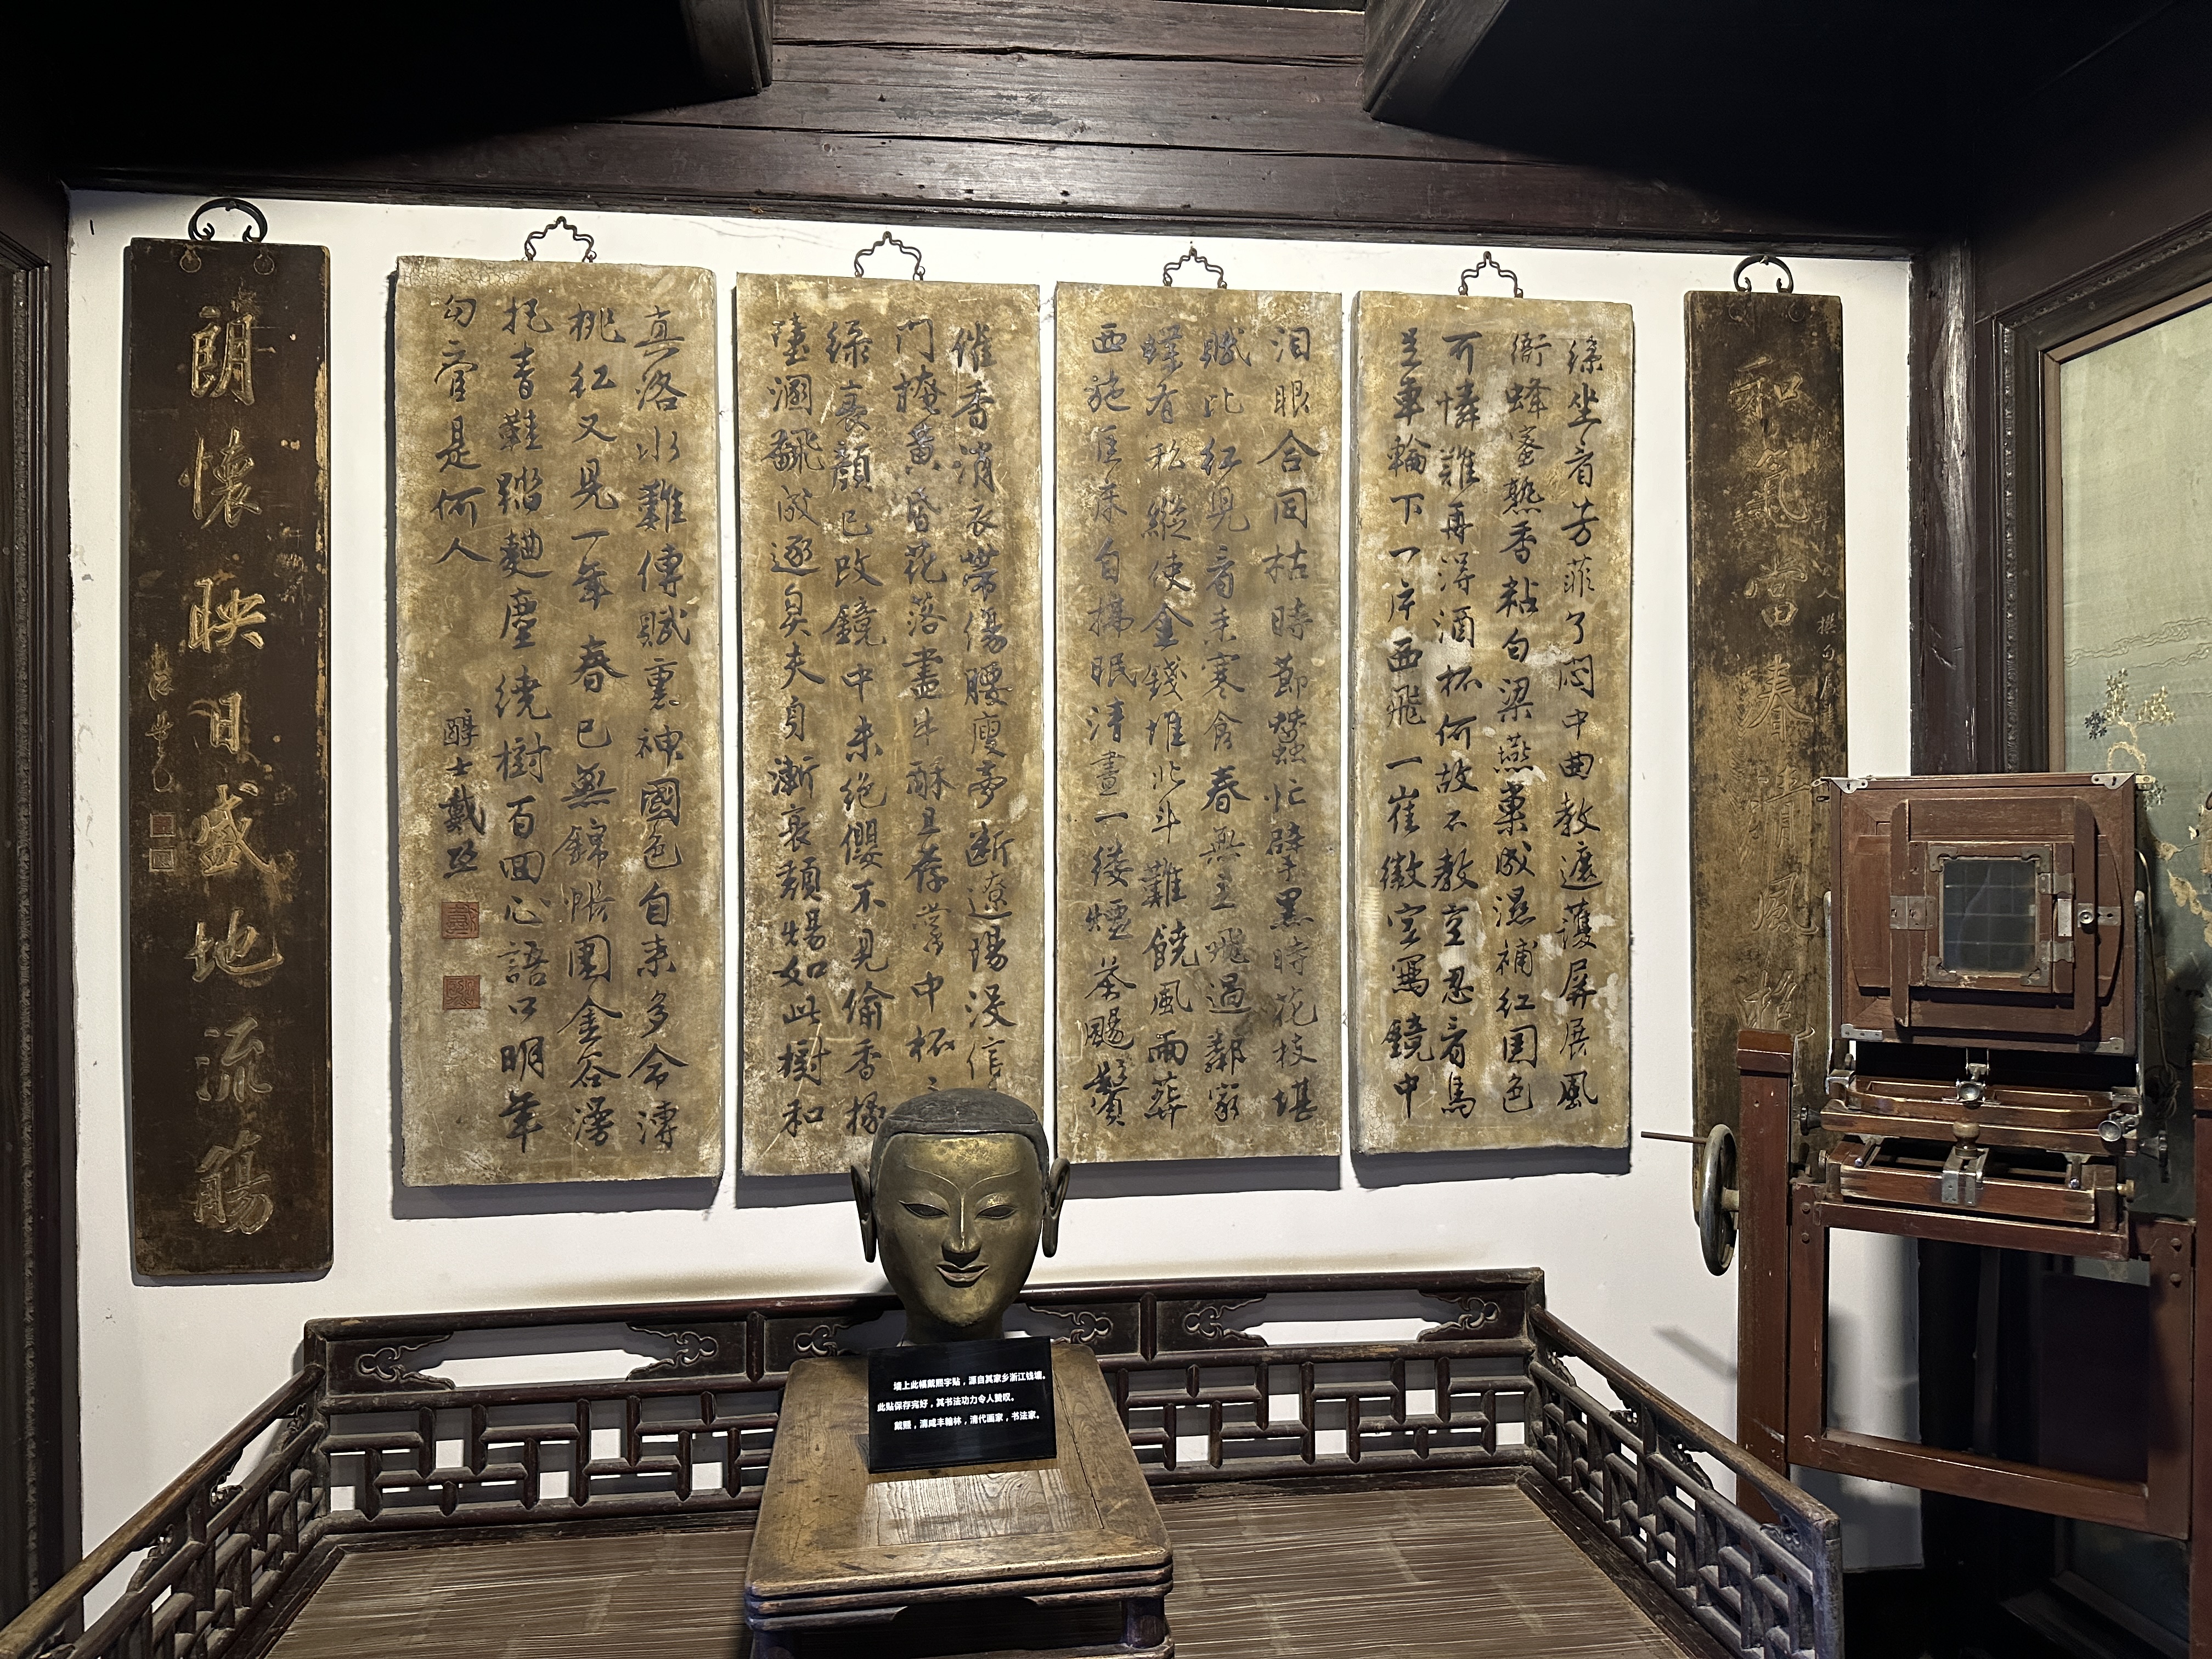 和氣當春清風
坐看芳菲了悶中曲教遮護屏展風
衙蜂蜜熟香粘白梁燕巢成濕補紅國色
可憐難再得酒杯何故不教空忍看馬
足車輪下一片西飛一崔徽空寫鏡中
淚眼合同枯時節蠶忙擘黑時花枝堪
賦比紅兒看來寒食春無主飛過鄰家
蝶有私縱使金錢堆北斗難饒風雨葬
西施匡床自拂眠清晝一縷煙茶颺鬢
催香消衣帶傷腰瘦夢斷遼陽沒信
門掩黃昏花落盡牛酥且薦掌中杯
綠衰顏已改鏡中朱絕纓不見偷香椽
墮溷翻成逐臭夫身漸衰頹如此樹和
真洛水難傳賦裏神國色自來多命薄
桃紅又見一年春已無錦帳圍金谷漫
把青鞋踏麴塵繞樹百回心語口明年
勾管是何人
醇士戴熙
朗懷映日盛地流觴
墙上此幅戴熙字贴，源自其家乡浙江钱塘。
此贴保存完好，其书法功力令人赞叹。
戴熙，清咸丰翰林，清代画家，书法家。